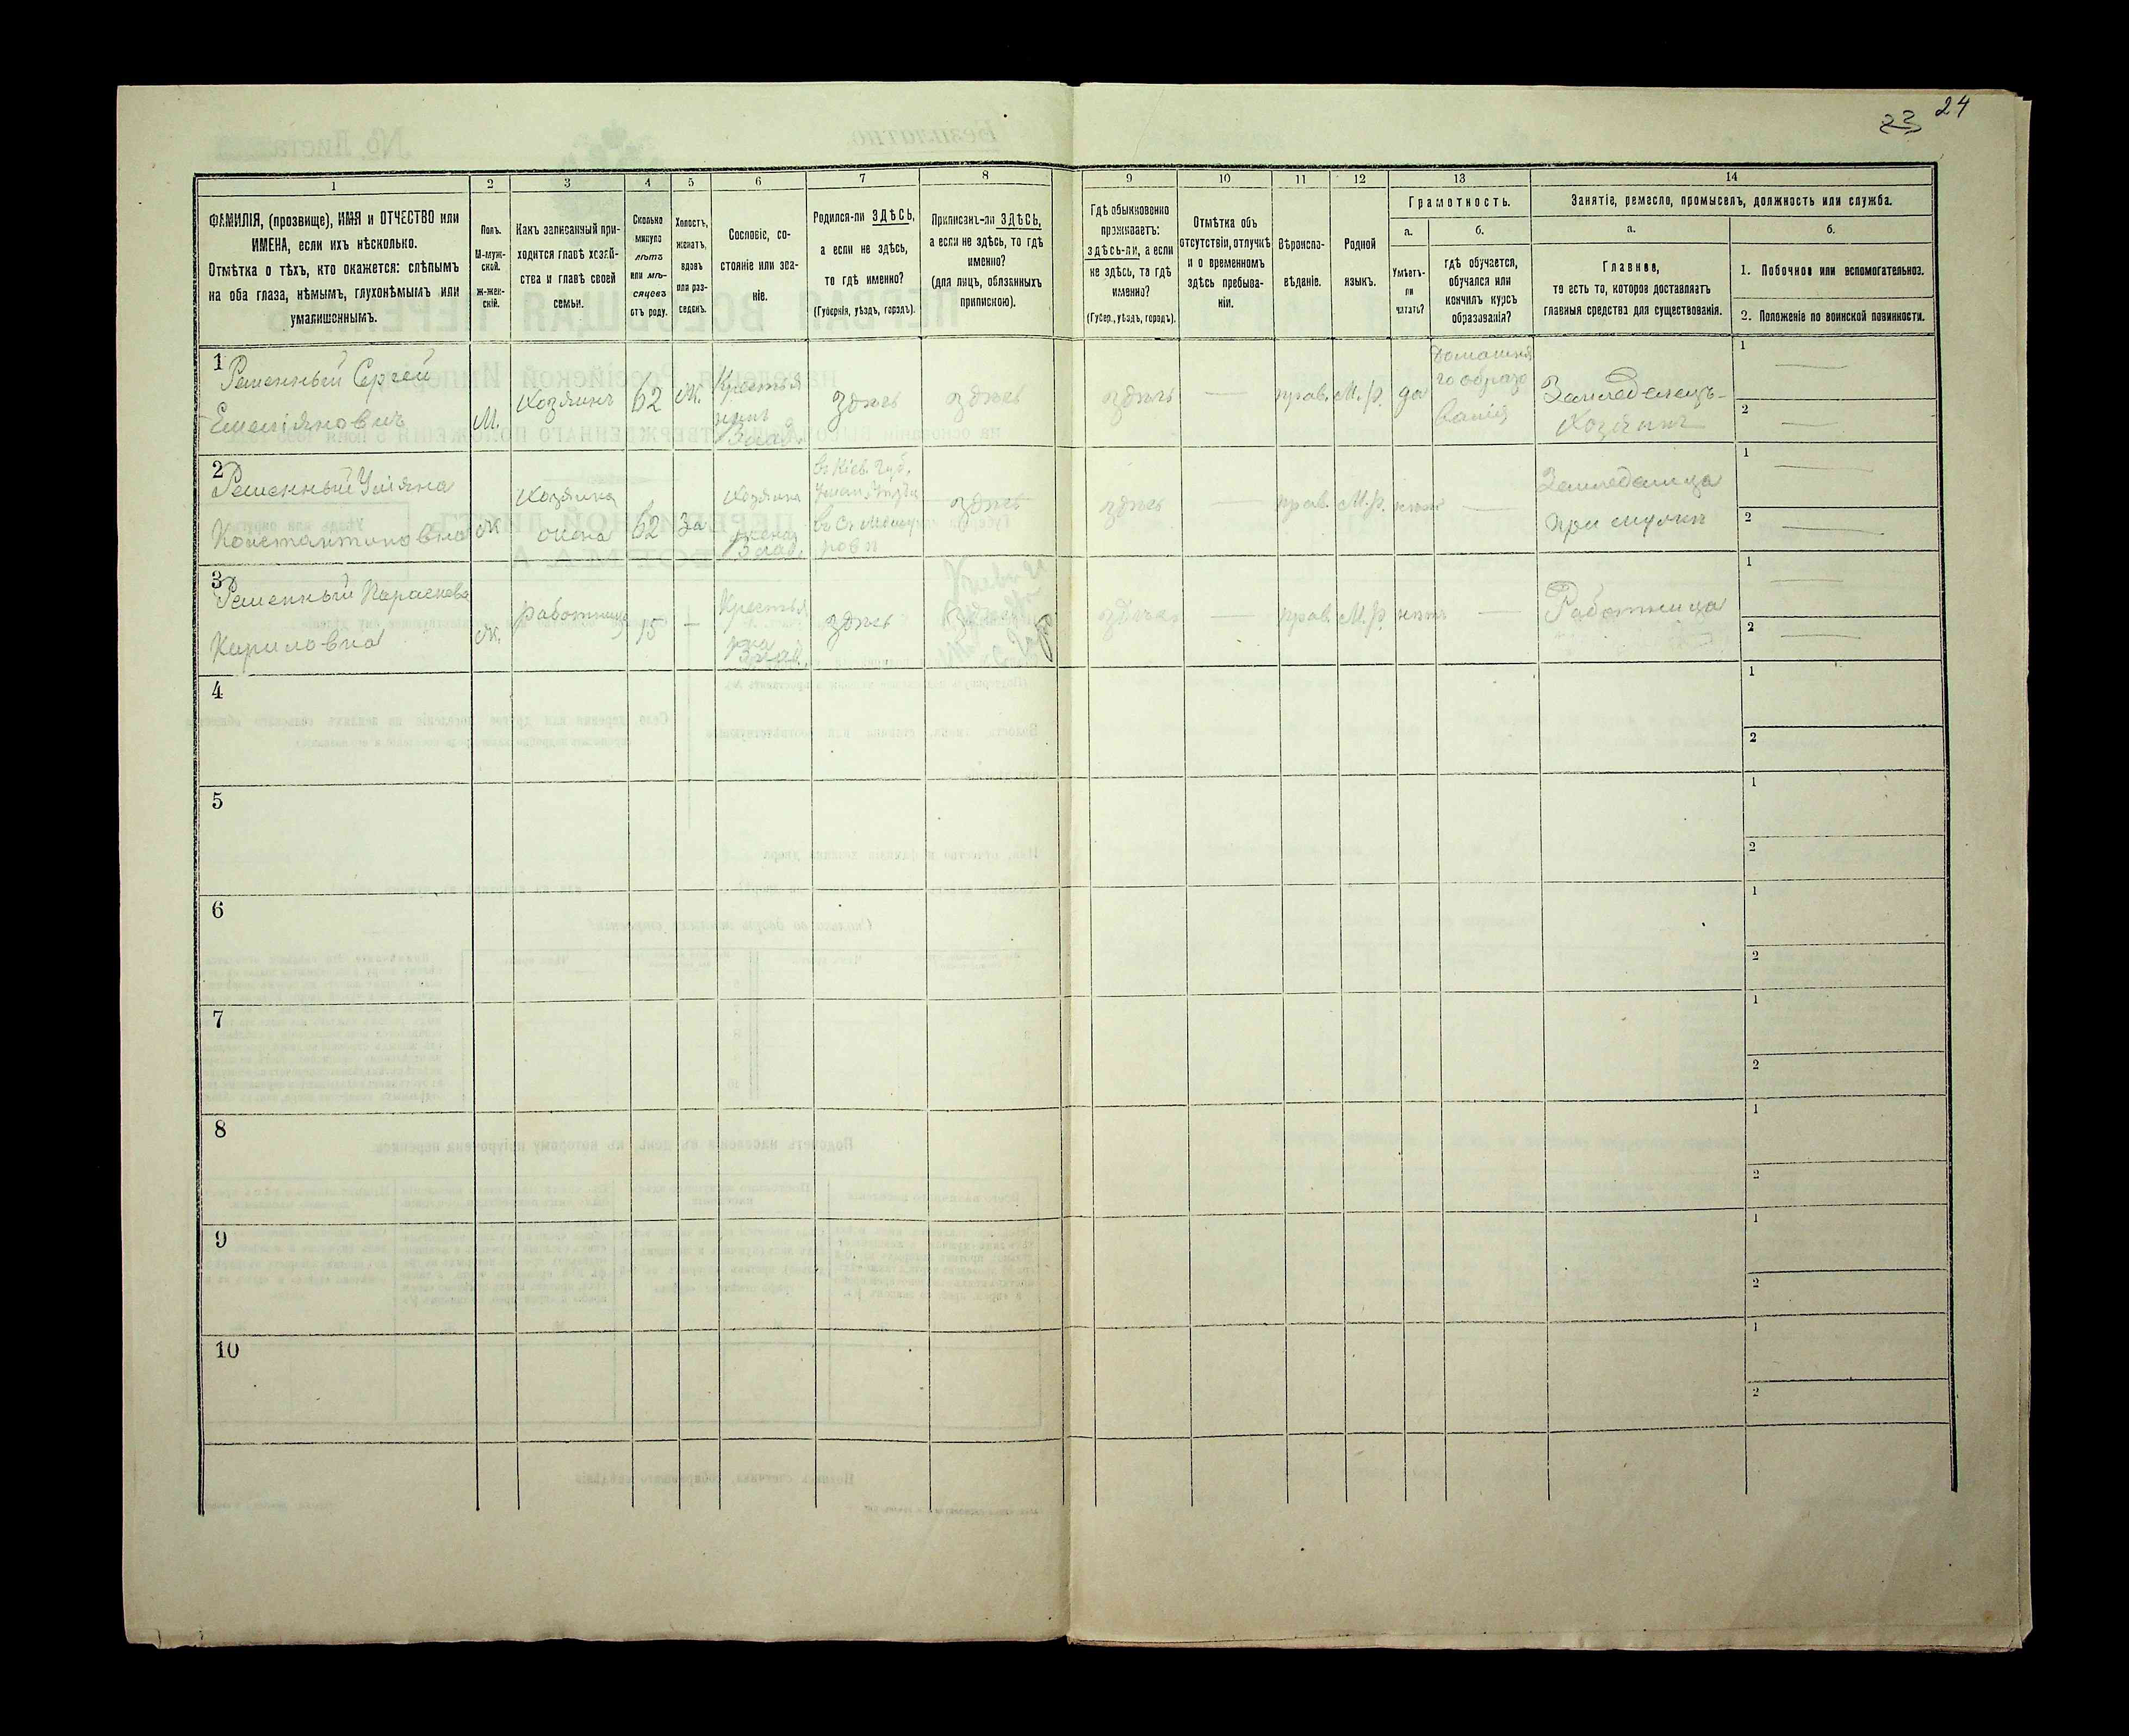 24
23
1 2 3 4 5 6 7 8 9 10 11 12 13 14
ФАМИЛІЯ, (прозвище), ИМЯ и ОТЧЕСТВО или
ИМЕНА, если ихъ нѣсколько.
Отмѣтка о тѣхъ, кто окажется: слѣпымъ
на оба глаза, нѣмымъ, глухонѣмымъ или
умалишеннымъ.
Полъ.
М-муж-
ской.
Ж-жен-
скій.
Какъ записанный при-
ходится главѣ хозяй-
ства и главѣ своей
семьи.
Сколько
минуло
лѣтъ
или мѣ-
сяцевъ
отъ роду.
Холостъ,
женатъ,
вдовъ
или раз-
веденъ.
Сословіе, со-
стояніе или зва-
ніе.
Родился-ли ЗДѢСЬ,
а если не здѣсь,
то гдѣ именно?
(Губернія, уѣздъ, городъ).
Приписанъ-ли ЗДѢСЬ,
а если не здѣсь, то гдѣ
именно?
(для лицъ, обязанныхъ
припискою).
Гдѣ обыкновенно
проживаетъ:
здѣсь-ли, а если
не здѣсь, то гдѣ
именно?
(Губер., уѣздъ, городъ).
Отмѣтка объ
отсутствіи, отлучкѣ
и о временномъ
здѣсь пребыва-
ніи.
Вѣроиспо-
вѣданіе.
Родной
языкъ.
Грамотность.
а.
Умѣетъ-
ли
читать?
б.
гдѣ обучается,
обучался или
кончилъ курсъ
образованія?
Занятіе, ремесло, промыселъ, должность или служба.
а.
Главное,
то есть то, которое доставляетъ
главныя средства для существованія.
б.
1. Побочное или вспомогательное.
2. Положеніе по воинской повинности.
1
Сергей
М.
Хозяинъ
62
Ж.
Крестья
нинъ
здѣсь
здѣсь
здѣсь
прав.
М.р.
да
Домашня
го образо
ванія
Земледелецъ-
Хозяинъ
1
2
2
Константиновна
Ж
Хозяина
жена
62
За
Хозяина
жена
въ Кіев. Губ.
здѣсь
здѣсь
прав.
М.р.
нѣтъ
Земледелица
при мужѣ
1
2
3
Параскева
Кириловна
Ж.
работница
15
Крестья
нка
здѣсь
здѣсь
прав.
М.р.
нѣтъ
Работница
1
2
4
1
2
5
1
2
6
1
2
7
1
2
8
1
2
9
1
2
10
1
2